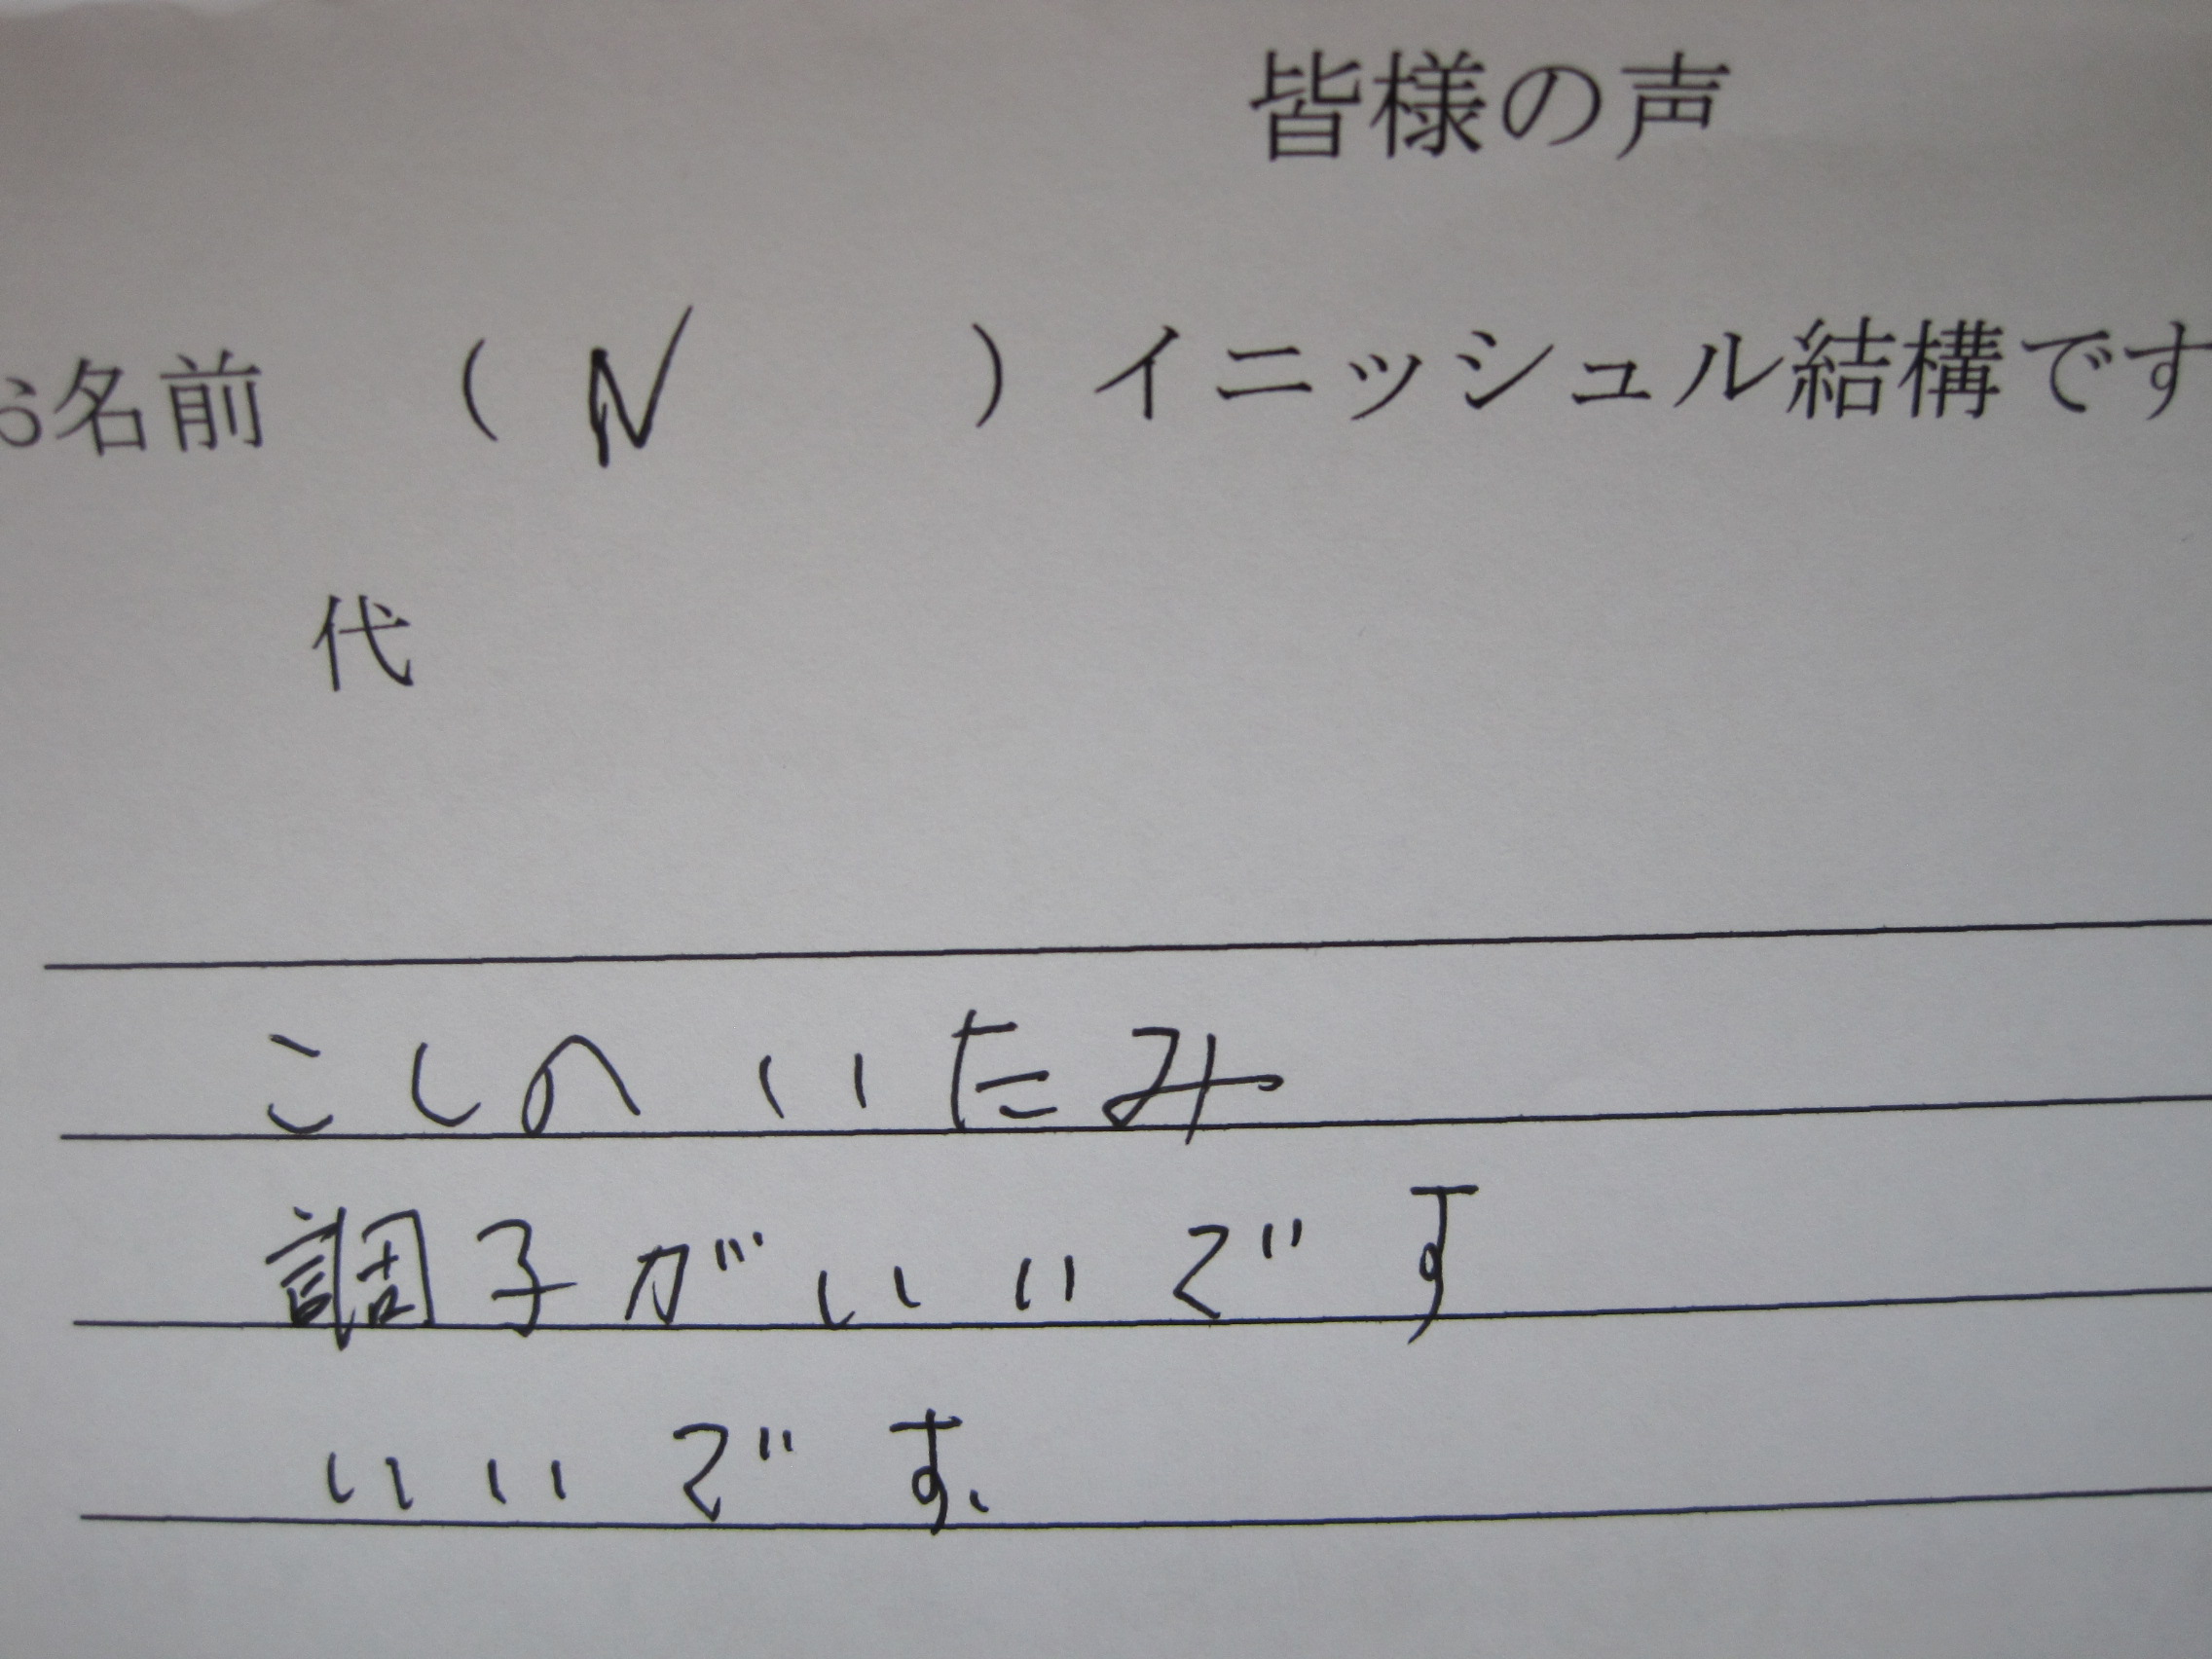 皆様の声
お名前 ( N ) イニッシュル結構です
代
こしのいたみ
調子がいいです
いいです、